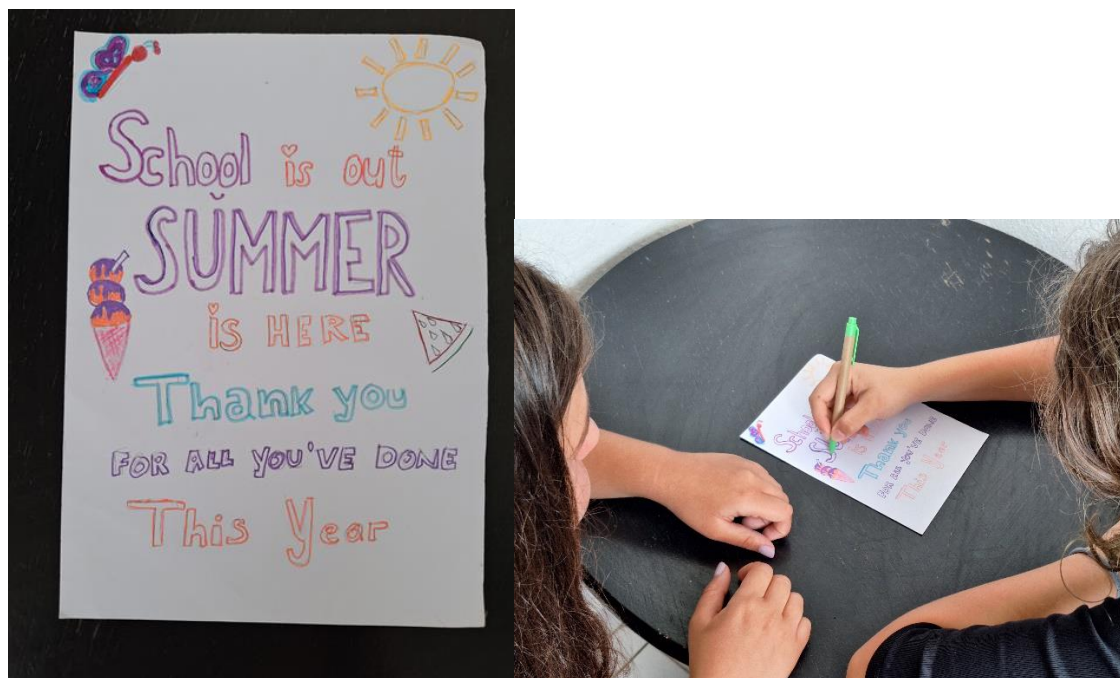 School is out
SUMMER
is HERE
Thank you
FOR ALL YOU'VE DONE
This Year
School
Thank you
FOR ALL YOU'VE DONE
This Year